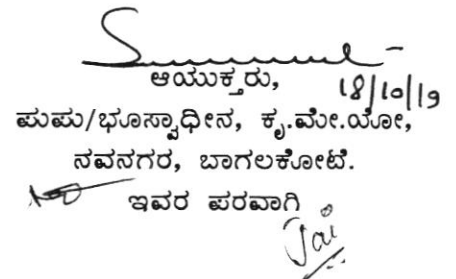 ಆಯುಕ್ತರು,
18/10/19
ಪುಪು/ಭೂಸ್ವಾಧೀನ, ಕೃ.ಮೇ.ಯೋ,
ನವನಗರ, ಬಾಗಲಕೋಟೆ.
ಇವರ ಪರವಾಗಿ